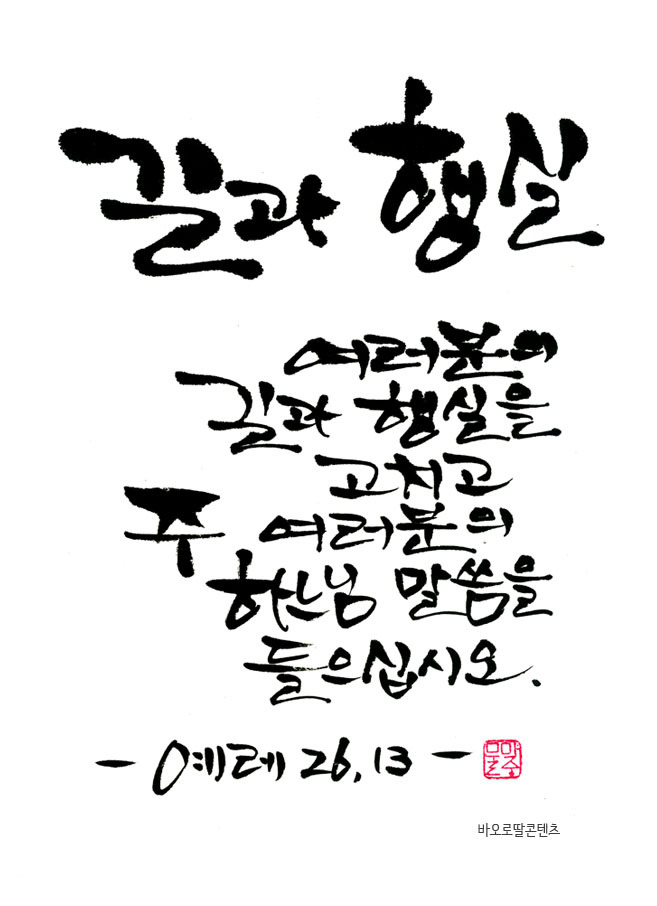 길과 행실
여러분의
길과 행실을
고치고
주 여러분의
하느님 말씀을
들으십시오.
- 예레 26,13 -
바오로딸콘텐츠